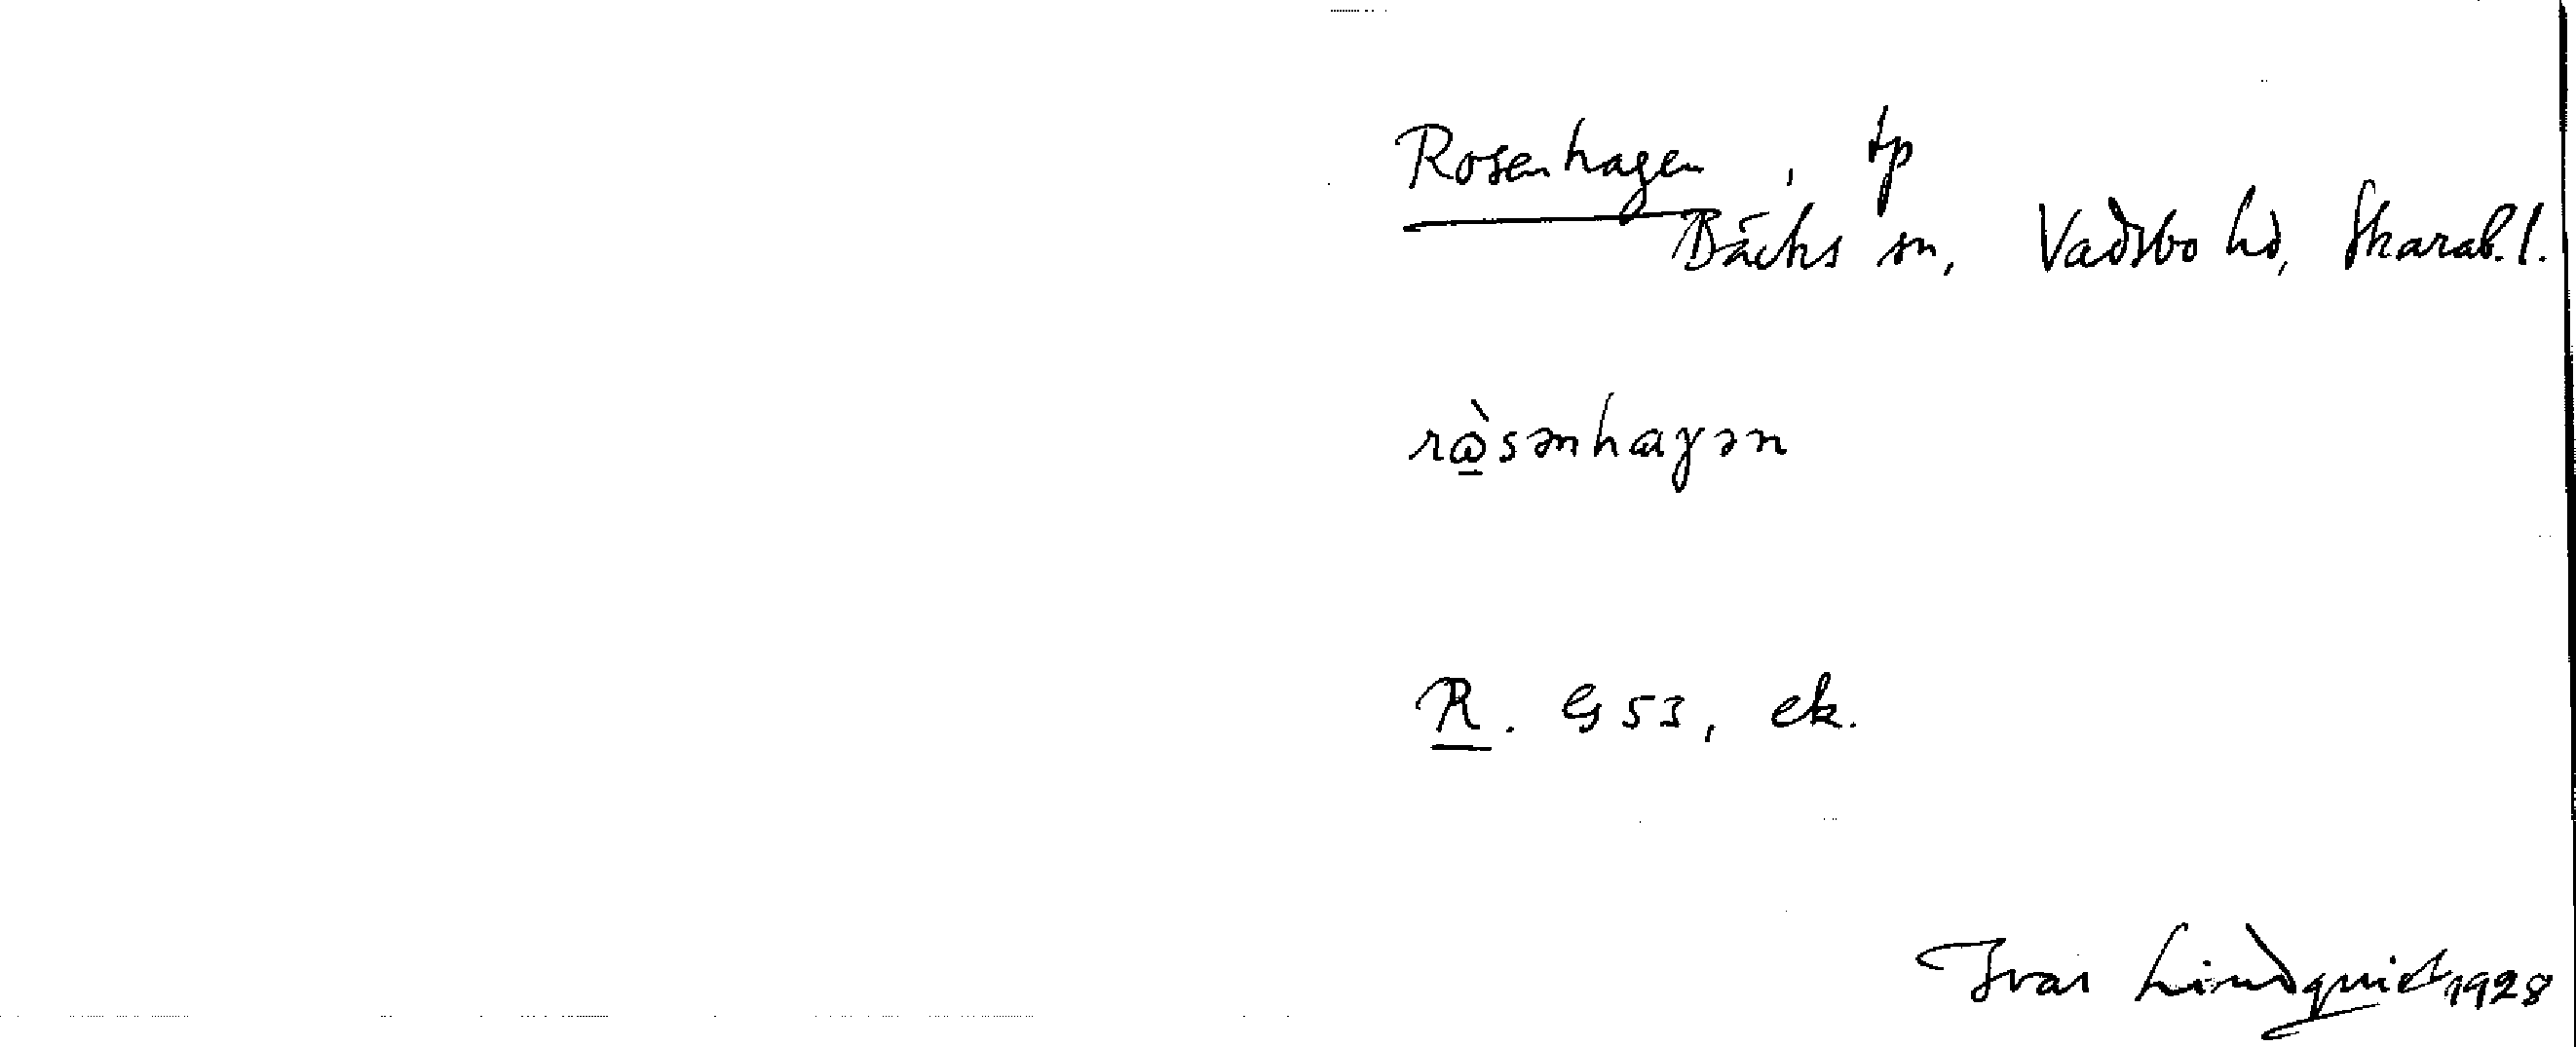 Rosenhagen, tp
Bäcks sn, Vadsbo hd, Skarab. l.
rὼsənhaγən
R. G 53, ek.
Ivar Lindquist 1928